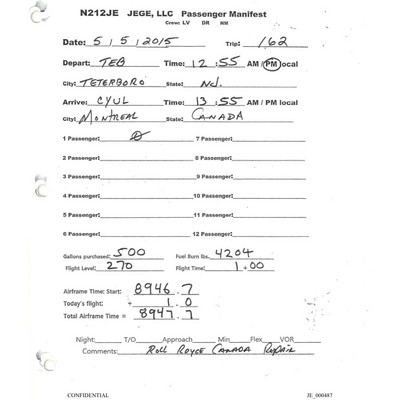 N212JE JEGE, LLC Passenger Manifest
Crew: LV DR MM
Date: 5 / 5 / 2015 Trip: 162
Depart: TEB Time: 12:55 AM / PM local
City: TETERBORO State: NJ.
Arrive: CYUL Time: 13:55 AM / PM local
City: MONTREAL State: CANADA
1 Passenger: 7 Passenger:
2 Passenger: 8 Passenger:
3 Passenger: 9 Passenger:
4 Passenger: 10 Passenger:
5 Passenger: 11 Passenger:
6 Passenger: 12 Passenger:
Gallons purchased: 500 Fuel Burn lbs. 4204
Flight Level: 270 Flight Time: 1+00
Airframe Time: Start: 8946.7
Today's flight: + 1.0
Total Airframe Time = 8947.7
Night: T/O Approach Min Flex VOR
Comments: ROLL ROYCE CANADA REPAIR
CONFIDENTIAL JE_000487